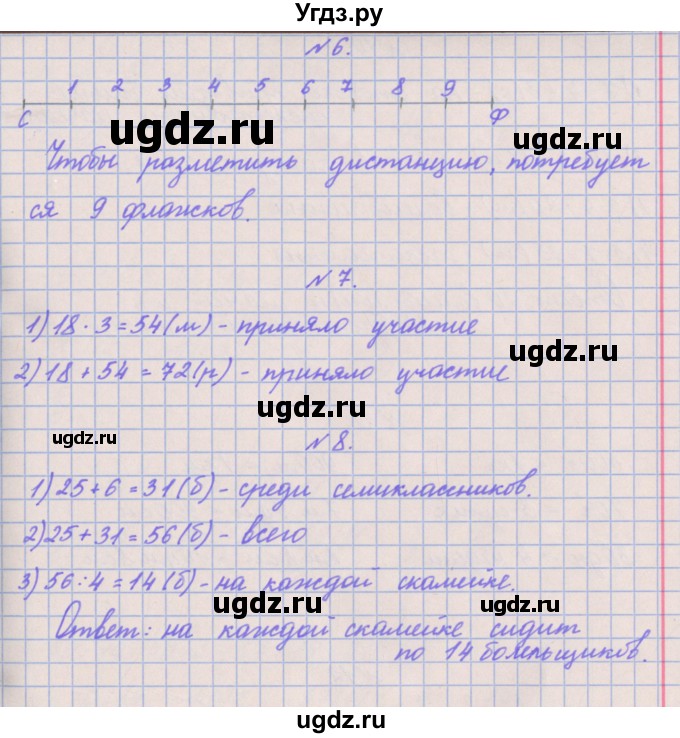 Угдз.ру
№6.
1 2 3 4 5 6 7 8 9
С Ф
ugdz.ru
Чтобы разметить дистанцию, потребует
ugdz.ru
ся 9 флажков.
№7.
1) 18 · 3 = 54 (м) - приняло участие
ugdz.ru
2) 18 + 54 = 72 (р) - приняло участие
ugdz.ru
ugdz.ru
№8.
1) 25 + 6 = 31 (б) - среди семиклассников.
2) 25 + 31 = 56 (б) - всего
3) 56 : 4 = 14 (б) - на каждой скамейке.
ugdz.ru ugdz.ru
Ответ: на каждой скамейке сидит
по 14 болельщиков.
ugdz.ru